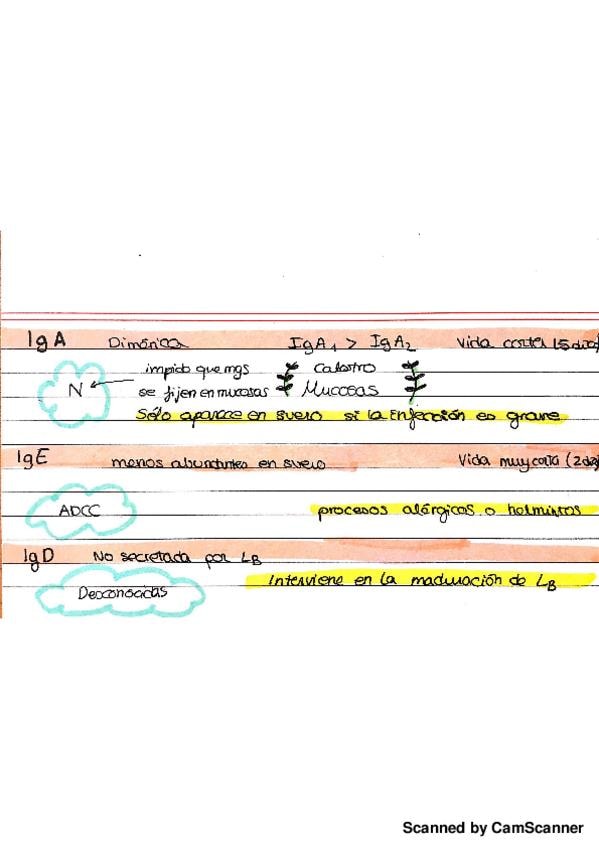 IgA Dimérica IgA1 > IgA2 Vida corta (5 días)
N impide que mgs Calostro
se fijen en mucosas Mucosas
Sólo aparece en suero si la infección es grave
IgE menos abundantes en suero Vida muy corta (2 días
ADCC procesos alérgicos o helmintos
IgD No secretada por LB
Interviene en la maduración de LB
Desconocidas
Scanned by CamScanner